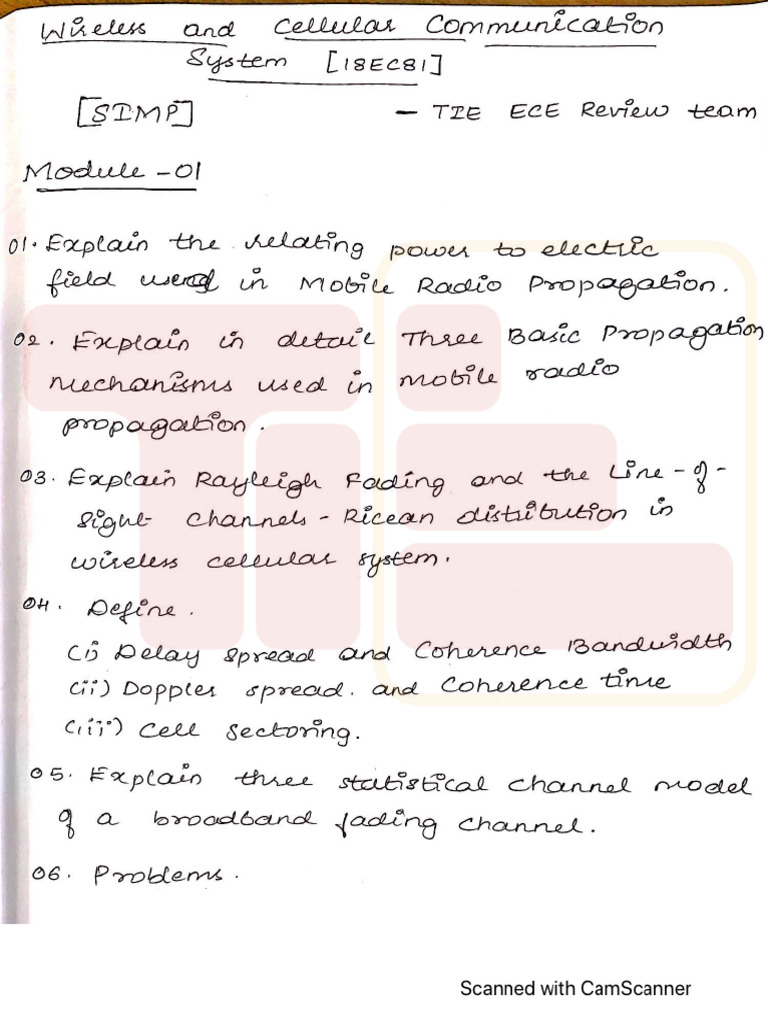 Wireless and Cellular Communication
System [18EC81]
[SIMP] - TIE ECE Review team
Module -01
01. Explain the relating power to electric
field used in Mobile Radio Propagation.
02. Explain in detail Three Basic Propagation
mechanisms used in mobile radio
propagation.
03. Explain Rayleigh Fading and the Line-of-
Sight Channels - Ricean distribution in
wireless cellular system.
04. Define.
(i) Delay spread and Coherence Bandwidth
(ii) Doppler spread. and Coherence time
(iii) Cell Sectoring.
05. Explain three statistical channel model
of a broadband fading channel.
06. Problems.
TIE
Scanned with CamScanner